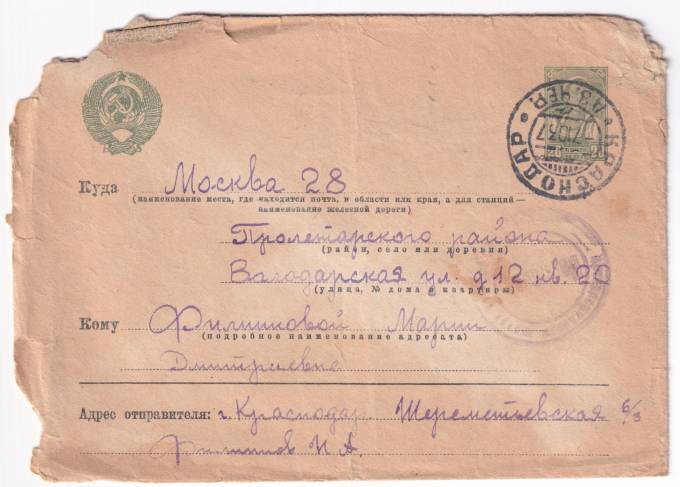 20
КРАСНОДАР
АЗ.ЧЕР.
Куда Москва 28
(наименование места, где находится почта, и области или края, а для станций —
наименование железной дороги)
Пролетарского района
(район, село или деревня)
Володарская ул. д 12 кв. 20
(улица, № дома и квартиры)
Кому Филипповой Марии
(подробное наименование адресата)
Дмитриевне
Адрес отправителя: г. Краснодар. Шереметьевская 6/3
Филиппов И. А.